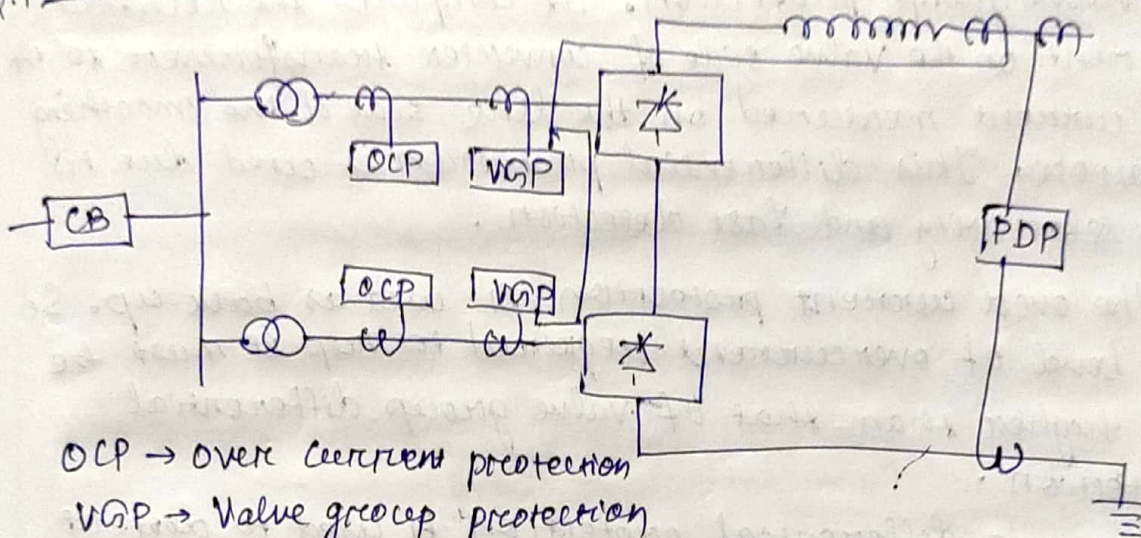 OCP
VGP
CB
PDP
OCP
VGP
OCP → over current protection
VGP → Valve group protection